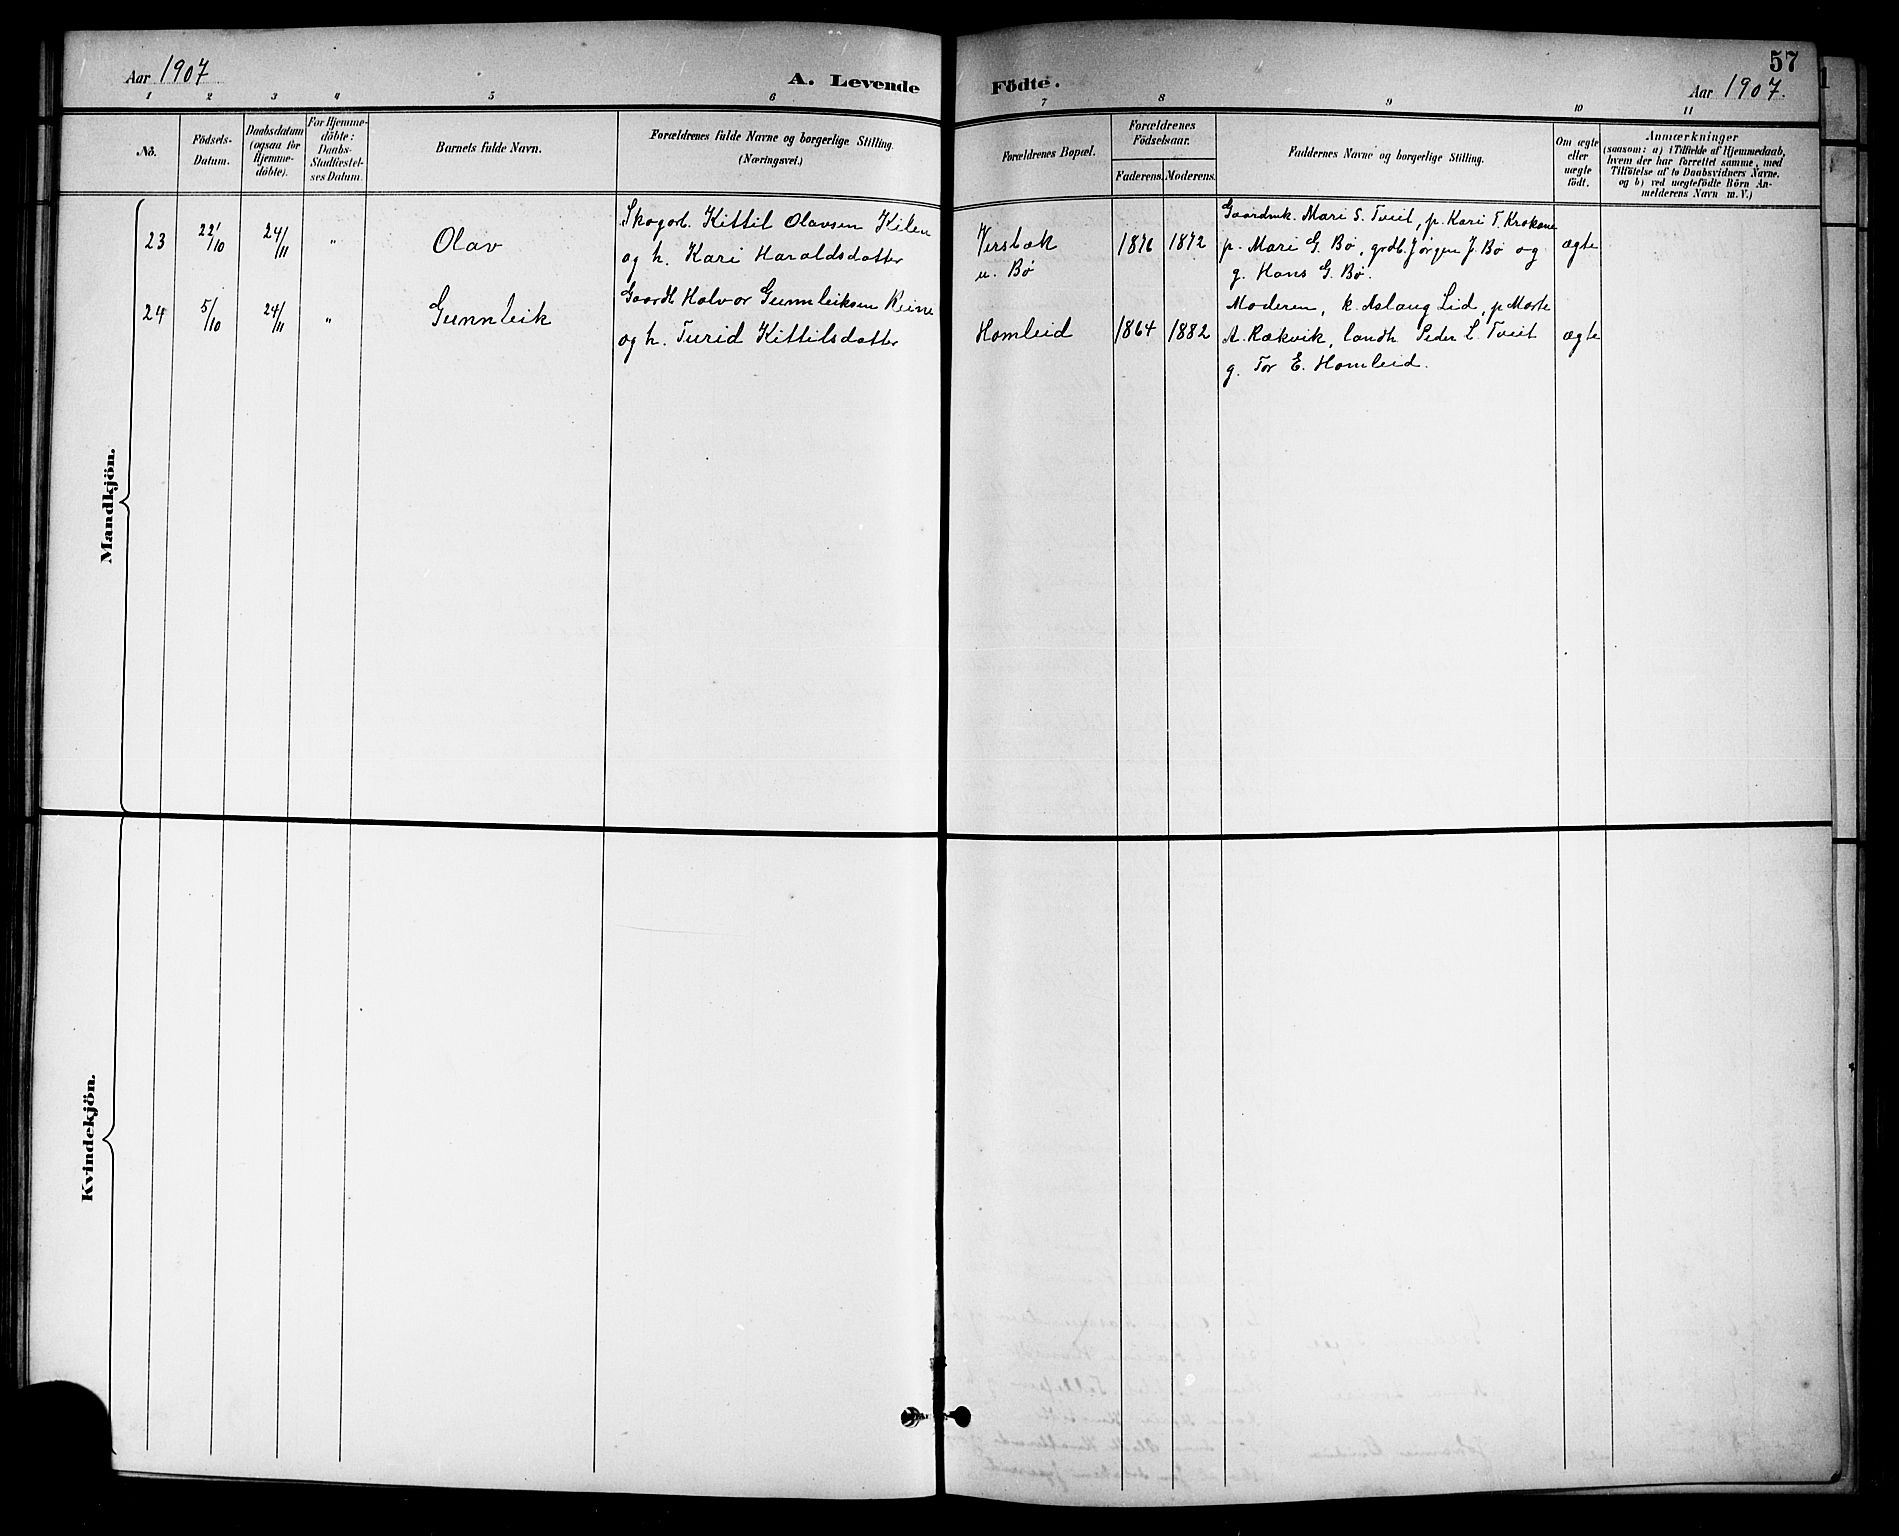 57
Aar 1907
A. Levende
Födte.
Aar 1907.
1 2 3 4 5 6 7 8 9 10 11
No.
Födsels-
Datum.
Daabsdatum
(ogsaa for
Hjemme-
döbte).
For Hjemme-
döbte:
Daabs-
Stadfæstel-
ses Datum.
Barnets fulde Navn.
Forældrenes fulde Navne og borgerlige Stilling.
(Næringsvei.)
Forældrenes Bopæl.
Forældrenes
Födselsaar.
Faderens. Moderens.
Faddernes Navne og borgerlige Stilling.
Om ægte
eller
uægte
födt.
Anmærkninger
(saasom: a) i Tilfælde af Hjemmedaab,
hvem der har forrettet samme, med
Tilföielse af to Daabsvidners Navne,
og b) ved uægtefödte Börn An-
melderens Navn m. V.)
Mandkjön.
23 22/10 24/11 " Olav
Skogarb. Kittil Olavsen Kilen
og h. Kari Haraldsdatter
Versbæk
u. Bø
1876 1872
Gaardmk. Mari S. Tveit, p. Kari T. Krokane
p. Mari G. Bø, grdb. Jørgen J. Bø og
g. Hans G. Bø.
ægte
24 5/10 24/11 " Gunnleik
Gaardb. Halvor Gunnleiksen Reine
og h. Turid Kittilsdatter
Homleid
1864 1882
Moderen, k. Aslaug Lid, p. Marte
A. Rækvik, landh. Peder L. Tveit
g. Tor E. Homleid.
ægte
Kvindekjön.